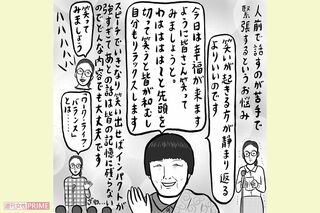 人前で話すのが苦手で
緊張するというお悩み
笑いが起きる方が静まり返る
よりいいのです
今日は幸福が来ます
ように皆さん笑って
みましょうと。
わはははは〜と先頭を
切って笑うと皆が和むし
自分もリラックスします
スピーチでいきなり笑い出せばインパクトが
強すぎてあとの話は皆の記憶に残らない
のでどんな内容でも大丈夫です
笑って
みましょう
「ワーク・ライフ・
バランス」
とは……
週刊女性PRIME